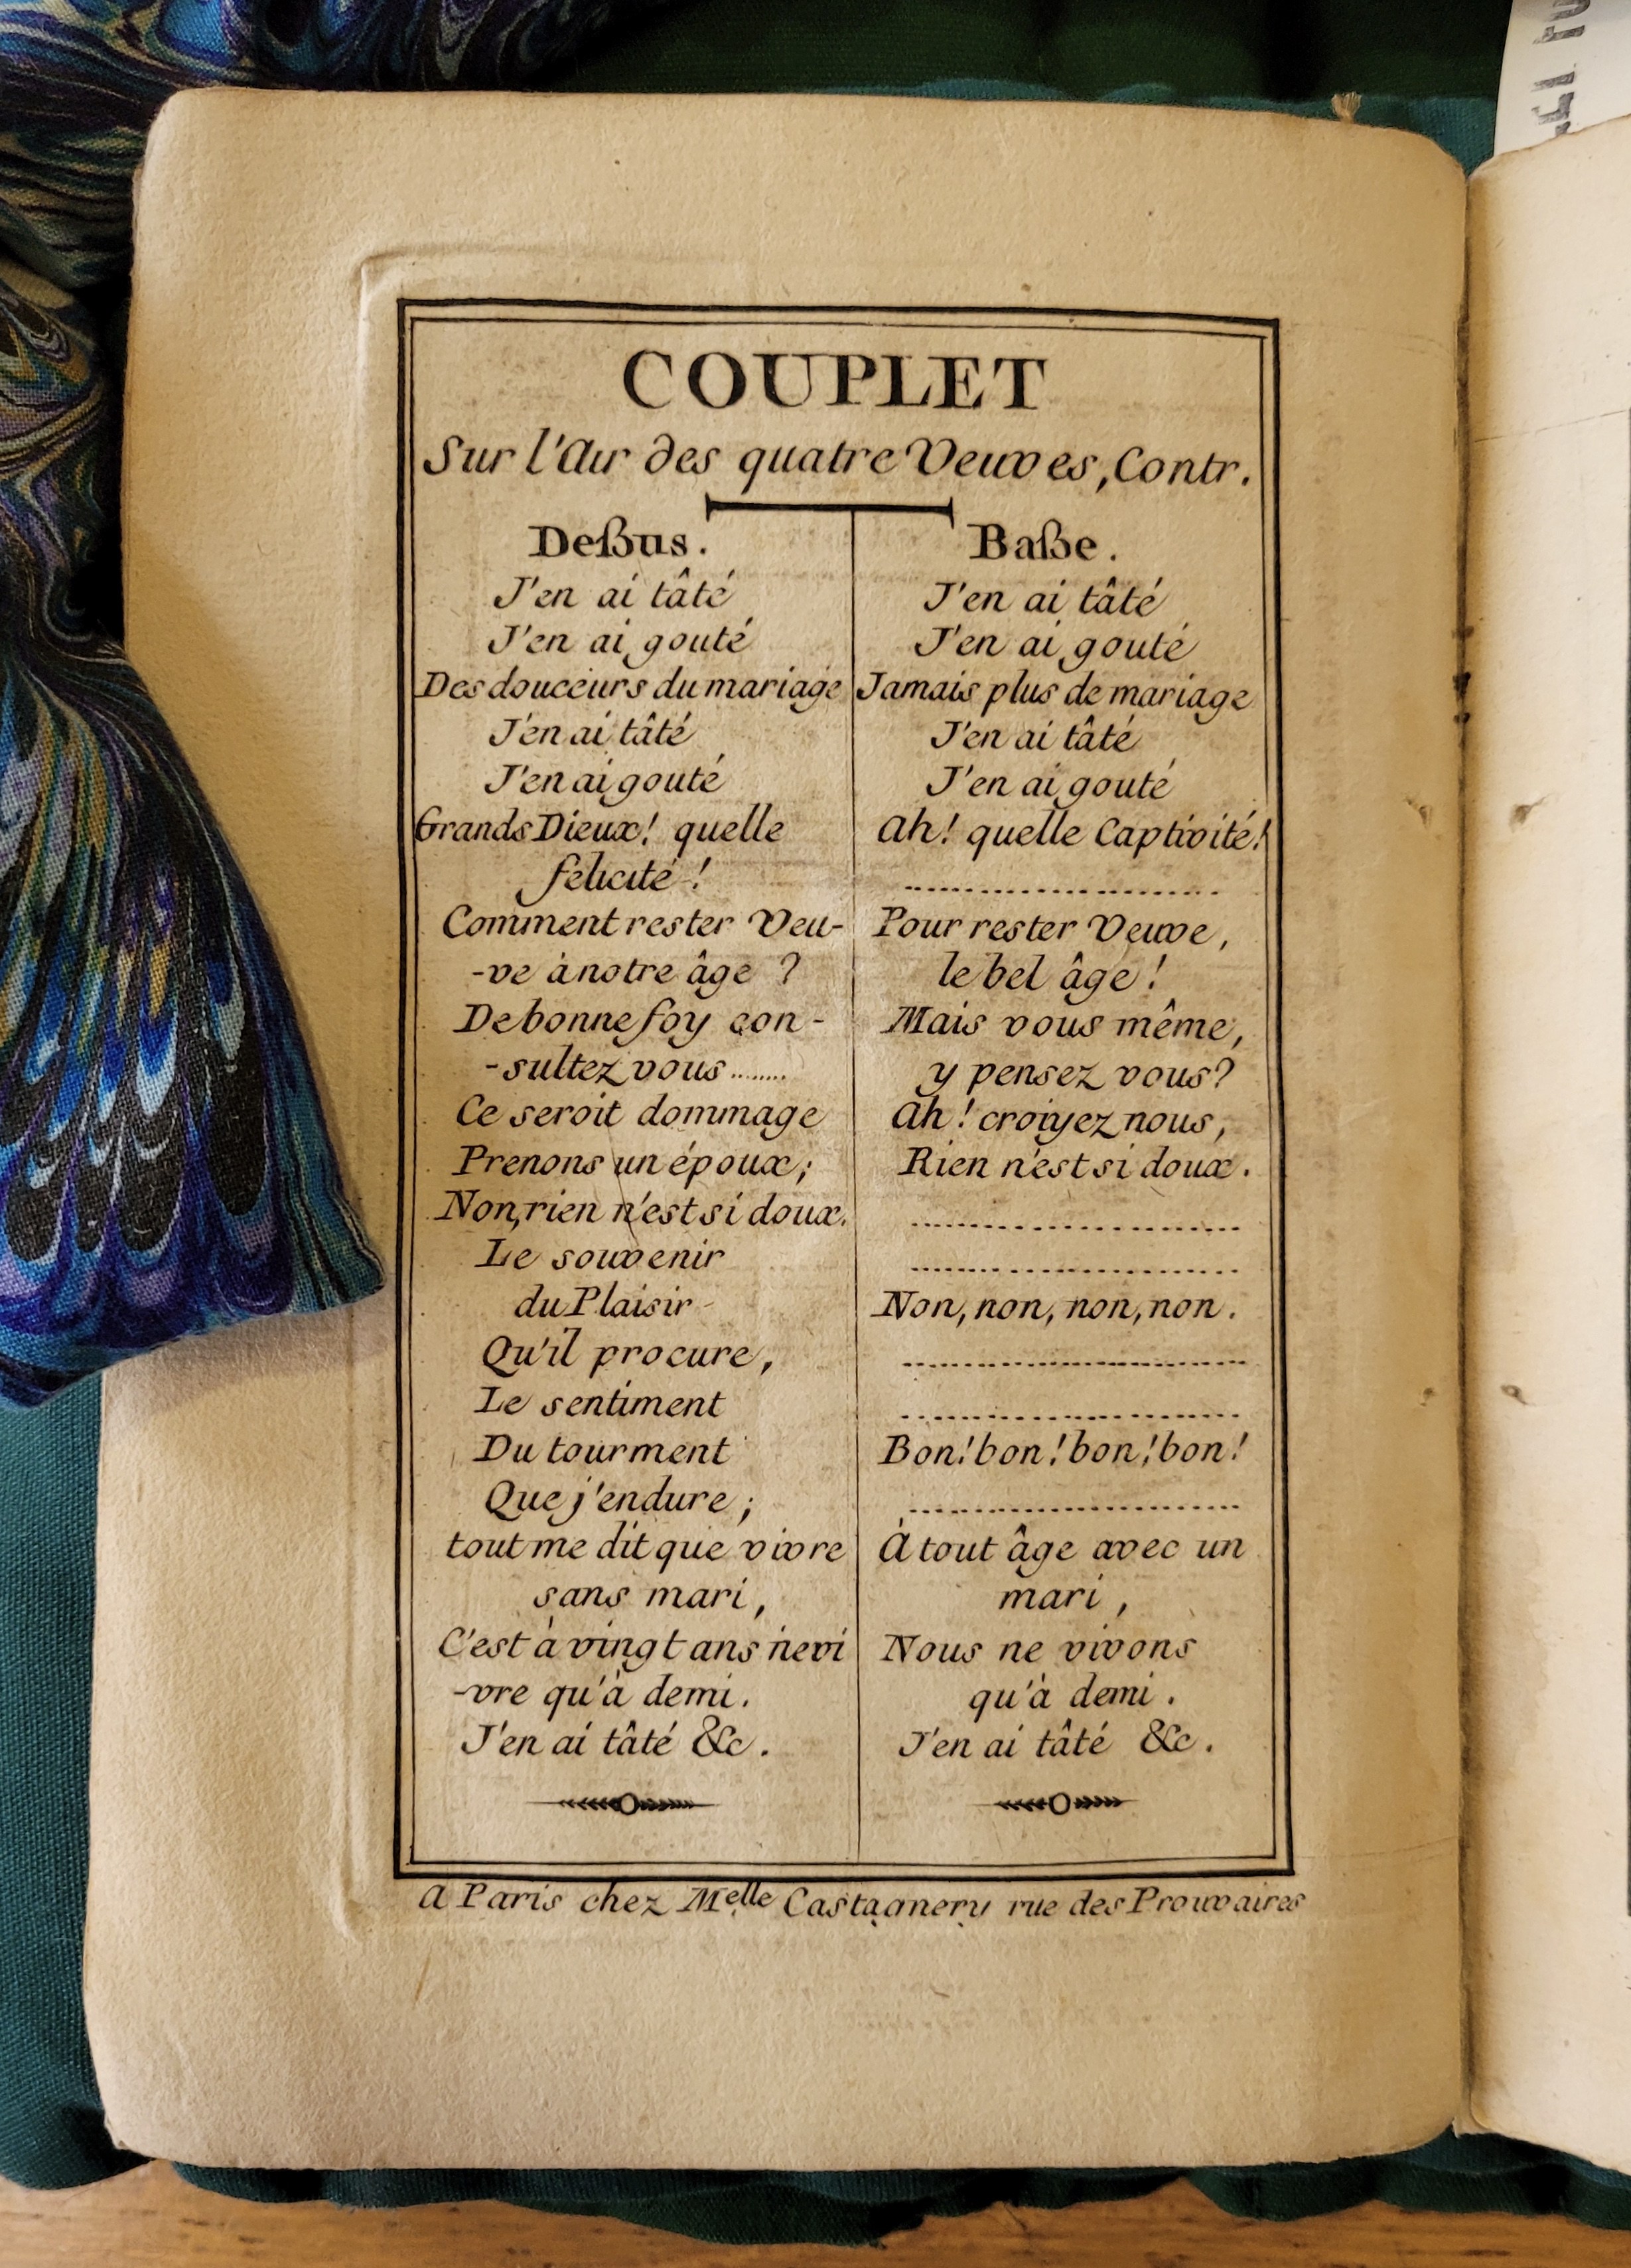 COUPLET
Sur l'Air des quatre Veuves, Contr.
Deßus.
J'en ai tâté
J'en ai gouté
Des douceurs du mariage
J'en ai tâté
J'en ai gouté
Grands Dieux! quelle
félicité!
Comment rester Veu-
-ve à notre âge ?
De bonne foy con-
-sultez vous........
Ce seroit dommage
Prenons un époux;
Non, rien n'est si doux.
Le souvenir
du Plaisir
Qu'il procure,
Le sentiment
Du tourment
Que j'endure;
tout me dit que vivre
sans mari,
C'est à vingt ans ne vi
-vre qu'à demi.
J'en ai tâté &c.
Baße.
J'en ai tâté
J'en ai gouté
Jamais plus de mariage
J'en ai tâté
J'en ai gouté
Ah! quelle Captivité!
.......................
Pour rester Veuve,
le bel âge!
Mais vous même,
y pensez vous?
Ah! croiyez nous,
Rien n'est si doux.
.......................
.......................
Non, non, non, non.
.......................
.......................
Bon! bon! bon! bon!
.......................
À tout âge avec un
mari,
Nous ne vivons
qu'à demi.
J'en ai tâté &c.
A Paris chez Melle Castagnery rue des Prouvaires